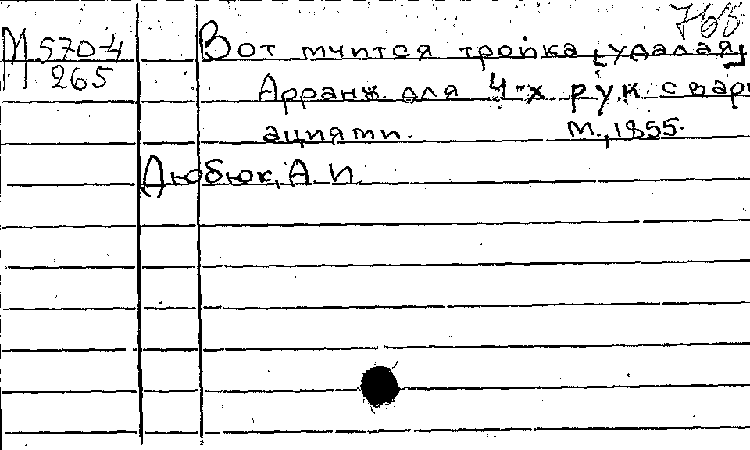 768
М 570-4
265
Вот мчится тройка [удалая]
Арранж. для 4-х рук с вари
ациями. М., 1855.
Дюбюк, А. И.